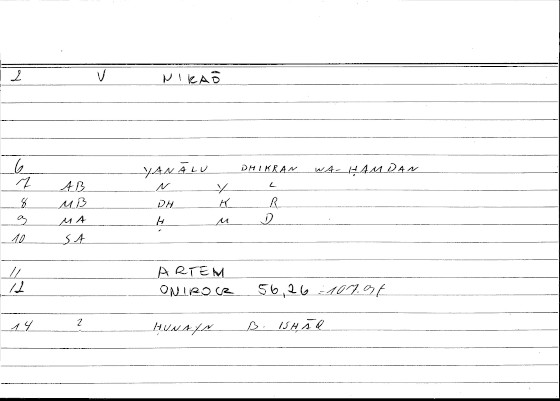 2 V NIKAŌ
6 YANĀLU DHIKRAN WA-ḤAMDAN
7 AB N Y L
8 MB DH K R
9 MA Ḥ M D
10 SA
11 ARTEM
12 ONIROCR 56,26 = 107.9f
14 2 ḤUNAYN B. ISḤĀQ